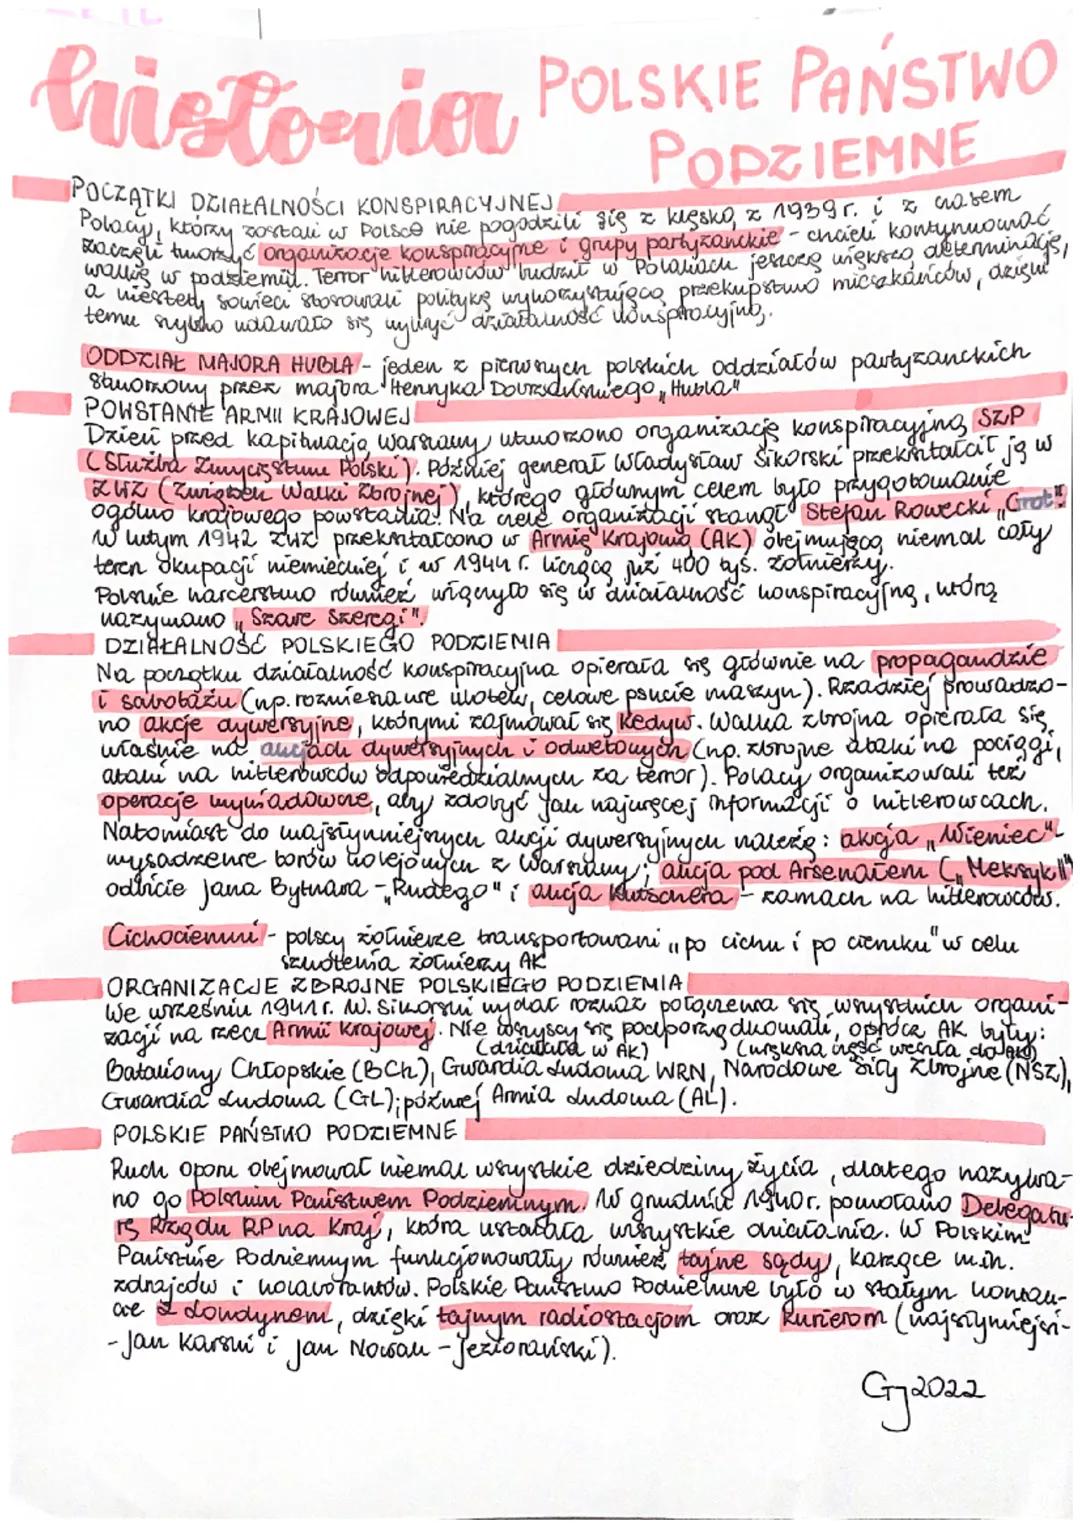 historia POLSKIE PAŃSTWO
PODZIEMNE
POCZĄTKI DZIAŁALNOŚCI KONSPIRACYJNEJ
Polacy, którzy zostali w Polsce nie pogodzili się z klęską z 1939 r. i z czasem
zaczęli tworzyć organizacje konspiracyjne i grupy partyzanckie - chcieli kontynuować
walkę w podziemiu. Terror hitlerowców budził w Polakach jeszcze większą determinację,
a niestety sowieci stosowali politykę wykorzystującą przekupstwo mieszkańców, dzięki
temu szybko udawało się wykryć działalność konspiracyjną.
ODDZIAŁ MAJORA HUBLA - jeden z pierwszych polskich oddziałów partyzanckich
stworzony przez majora Henryka Dobrzańskiego „Hubla"
POWSTANIE ARMII KRAJOWEJ
Dzień przed kapitulacją Warszawy utworzono organizację konspiracyjną SZP
(Służba Zwycięstwu Polski). Później generał Władysław Sikorski przekształcił ją w
ZWZ (Związek Walki Zbrojnej), którego głównym celem było przygotowanie
ogólno krajowego powstania. Na czele organizacji stanął Stefan Rowecki „Grot".
W lutym 1942 ZWZ przekształcono w Armię Krajową (AK) obejmującą niemal cały
teren okupacji niemieckiej i w 1944 r. liczącą już 400 tyś. żołnierzy.
Polskie harcerstwo również włączyło się w działalność konspiracyjną, którą
nazywano „Szare Szeregi".
DZIAŁALNOŚĆ POLSKIEGO PODZIEMIA
Na początku działalność konspiracyjna opierała się głównie na propagandzie
i sabotażu (np. rozwieszanie ulotek, celowe psucie maszyn). Rzadziej prowadzo-
no akcje dywersyjne, którymi zajmował się Kedyw. Walka zbrojna opierała się
właśnie na akcjach dywersyjnych i odwetowych (np. zbrojne ataki na pociągi,
ataki na hitlerowców odpowiedzialnych za terror). Polacy organizowali też
operacje wywiadowcze, aby zdobyć jak najwięcej informacji o hitlerowcach.
Natomiast do najsłynniejszych akcji dywersyjnych należą: akcja „Wieniec" -
wysadzenie torów kolejowych z Warszawy; akcja pod Arsenałem („Meksyk II")
odbicie Jana Bytnara - „Rudego" i akcja Kutschera - zamach na hitlerowców.
Cichociemni - polscy żołnierze transportowani „po cichu i po ciemku" w celu
szkolenia żołnierzy AK
ORGANIZACJE ZBROJNE POLSKIEGO PODZIEMIA
We wrześniu 1941 r. W. Sikorski wydał rozkaz połączenia się wszystkich organi-
zacji na rzecz Armii Krajowej. Nie wszyscy się podporządkowali, oprócz AK były:
(działała w AK) (większa część weszła do AK)
Bataliony Chłopskie (BCh), Gwardia Ludowa WRN, Narodowe Siły Zbrojne (NSZ),
Gwardia Ludowa (GL); później Armia Ludowa (AL).
POLSKIE PAŃSTWO PODZIEMNE
Ruch oporu obejmował niemal wszystkie dziedziny życia, dlatego nazywa-
no go Polskim Państwem Podziemnym. W grudniu 1940 r. powołano Delegatu-
rę Rządu RP na Kraj, która ustalała wszystkie działania. W Polskim
Państwie Podziemnym funkcjonowały również tajne sądy, karzące m.in.
zdrajców i kolaborantów. Polskie Państwo Podziemne było w stałym kontak-
cie z Londynem, dzięki tajnym radiostacjom oraz kurierom (najsłynniejsi-
- Jan Karski i Jan Nowak - Jeziorański).
GJ 2022